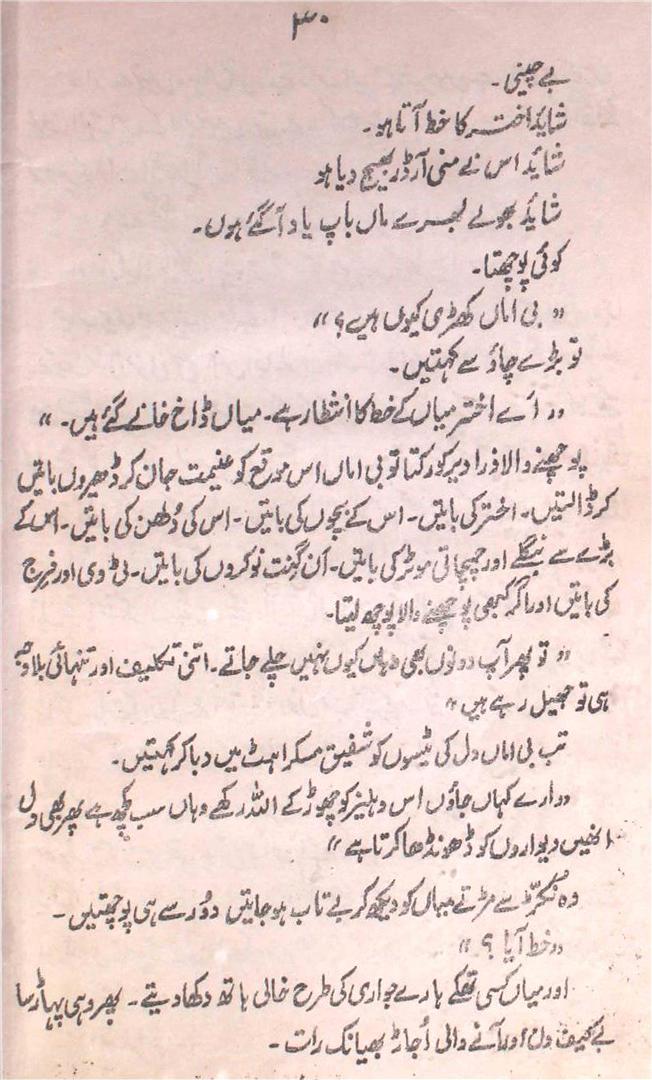 ۳۰
بے چینی۔
شاید اختر کا خط آتا ہو۔
شاید اس نے منی آرڈر بھیج دیا ہو
شاید بھولے بسرے ماں باپ یاد آ گئے ہوں۔
کوئی پوچھتا۔
” بی اماں کھڑی کیوں ہیں ؟ “
تو بڑے چاؤ سے کہتیں۔
” اے اختر میاں کے خط کا انتظار ہے۔ میاں ڈاخ خانے گئے ہیں۔ “
پوچھنے والا ذرا دیر کو رکتا تو بی اماں اس موقع کو غنیمت جان کر ڈھیروں باتیں
کر ڈالتیں۔ اختر کی باتیں۔ اس کے بچوں کی باتیں۔ اس کی دُلھن کی باتیں۔ اس کے
بڑے سے بنگلے اور چمچاتی موٹر کی باتیں۔ اَن گِنت نوکروں کی باتیں۔ ٹی وی اور فرج
کی باتیں اور اگر کبھی پوچھنے والا پوچھ لیتا۔
” تو پھر آپ دونوں بھی وہاں کیوں نہیں چلے جاتے۔ اتنی تکلیف اور تنہائی بلاوجہ
ہی تو جھیل رہے ہیں “
تب بی اماں دل کی ٹیسوں کو شفیق مسکراہٹ میں دبا کر کہتیں۔
” ارے کہاں جاؤں اس دہلیز کو چھوڑ کے اللہ رکھے وہاں سب کچھ ہے پھر بھی دل
انھیں دیواروں کو ڈھونڈھا کرتا ہے “
وہ نُکڑ سے مڑتے میاں کو دیکھ کر بے تاب ہو جاتیں دُور سے ہی پوچھتیں۔
” خط آیا ؟ “
اور میاں کسی تھکے ہارے جواری کی طرح خالی ہاتھ دکھا دیتے۔ پھر وہی پہاڑ سا
بے کیف دن اور آنے والی اُجاڑ بھیانک رات۔